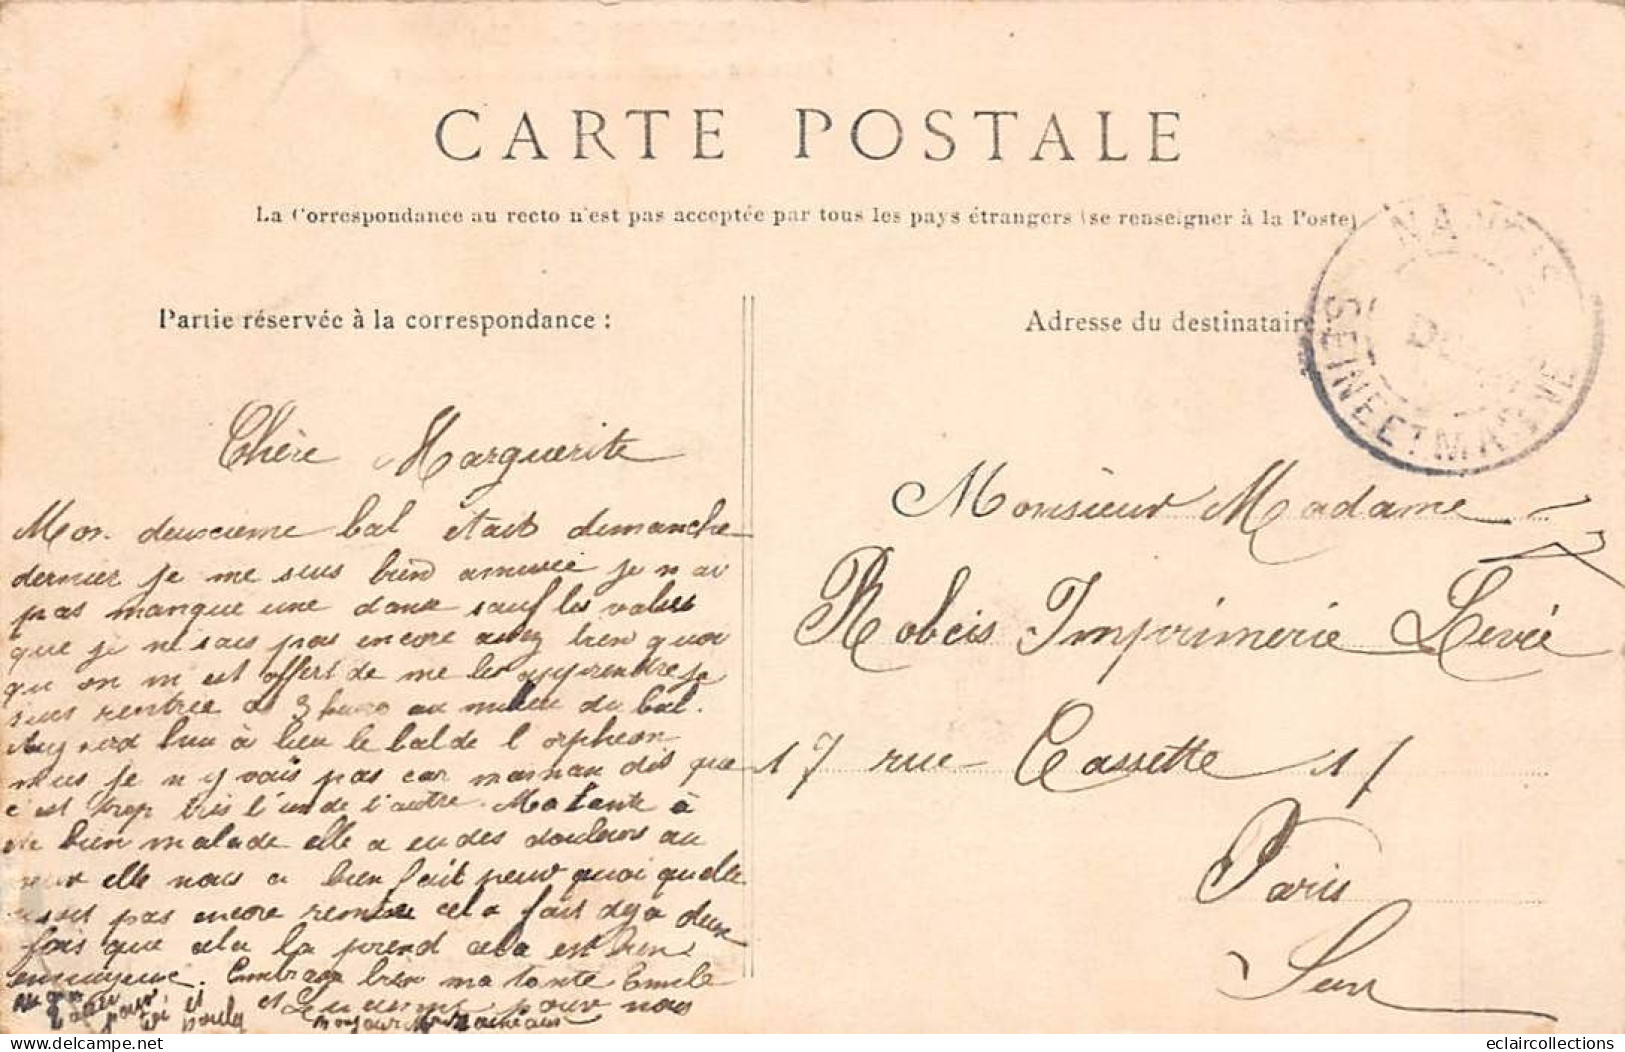 CARTE POSTALE
La Correspondance au recto n'est pas acceptée par tous les pays étrangers (se renseigner à la Poste)
NANGIS
SEINE ET MARNE
Partie réservée à la correspondance :
Adresse du destinataire
Chère Marguerite
Mon deuxcieme bal etait dimanche
dernier je me suis bien amusée je n ai
pas manque une danse sauf les valses
que je ne sais pas encore assez bien quoi
qu on m est offert de me les apprendre je
suis rentree a 3 heures au milieu du bal.
Auj ourd hui à lieu le bal de l orpheon
mais je n y vais pas car maman dis que
c'est trop près l'un de l'autre. Ma tante à
été bien malade elle a eu des douleurs au
cœur elle nous a bien fait peur quoi quelle
pas encore remise cela fait deja deux
fois que cela la prend cela est bien
ennuyeux. Embrasse bien ma tante Emile
et pour nous
pour toi et
bonjour
Monsieur Madame
Robcis Imprimerie Levée
17 rue Cassette 17
Paris